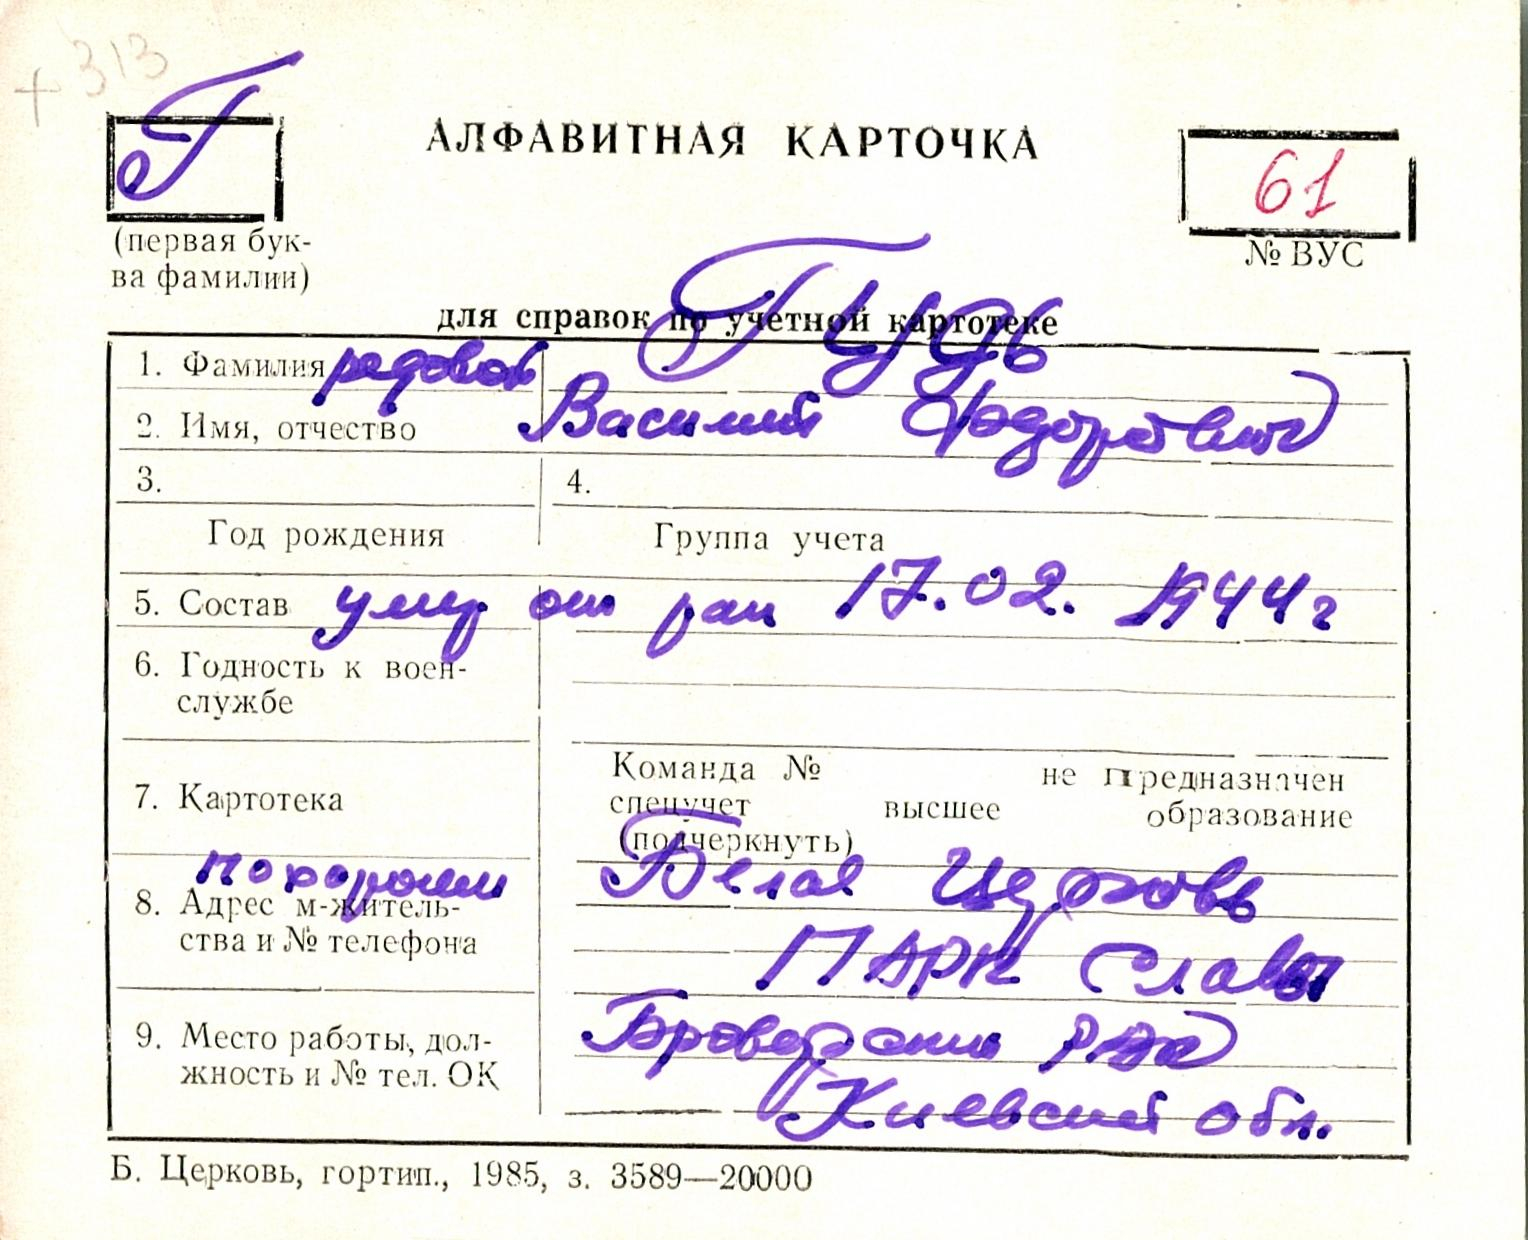 + 313
Г
АЛФАВИТНАЯ КАРТОЧКА
61
(первая бук-
ва фамилии)
№ ВУС
Гудь
для справок по учетной картотеке
1. Фамилия рядовой
2. Имя, отчество Василий Федорович
3. 4.
Год рождения Группа учета
5. Состав умер от ран 17.02. 1944 г
6. Годность к воен-
службе
Команда № не предназначен
7. Картотека
спецучет высшее образование
(подчеркнуть)
похоронен Белая Церковь
8. Адрес м-житель-
ства и № телефона
ПАРК Славы
9. Место работы, дол-
жность и № тел. ОК
Киевской обл.
Б. Церковь, гортип., 1985, з. 3589—20000